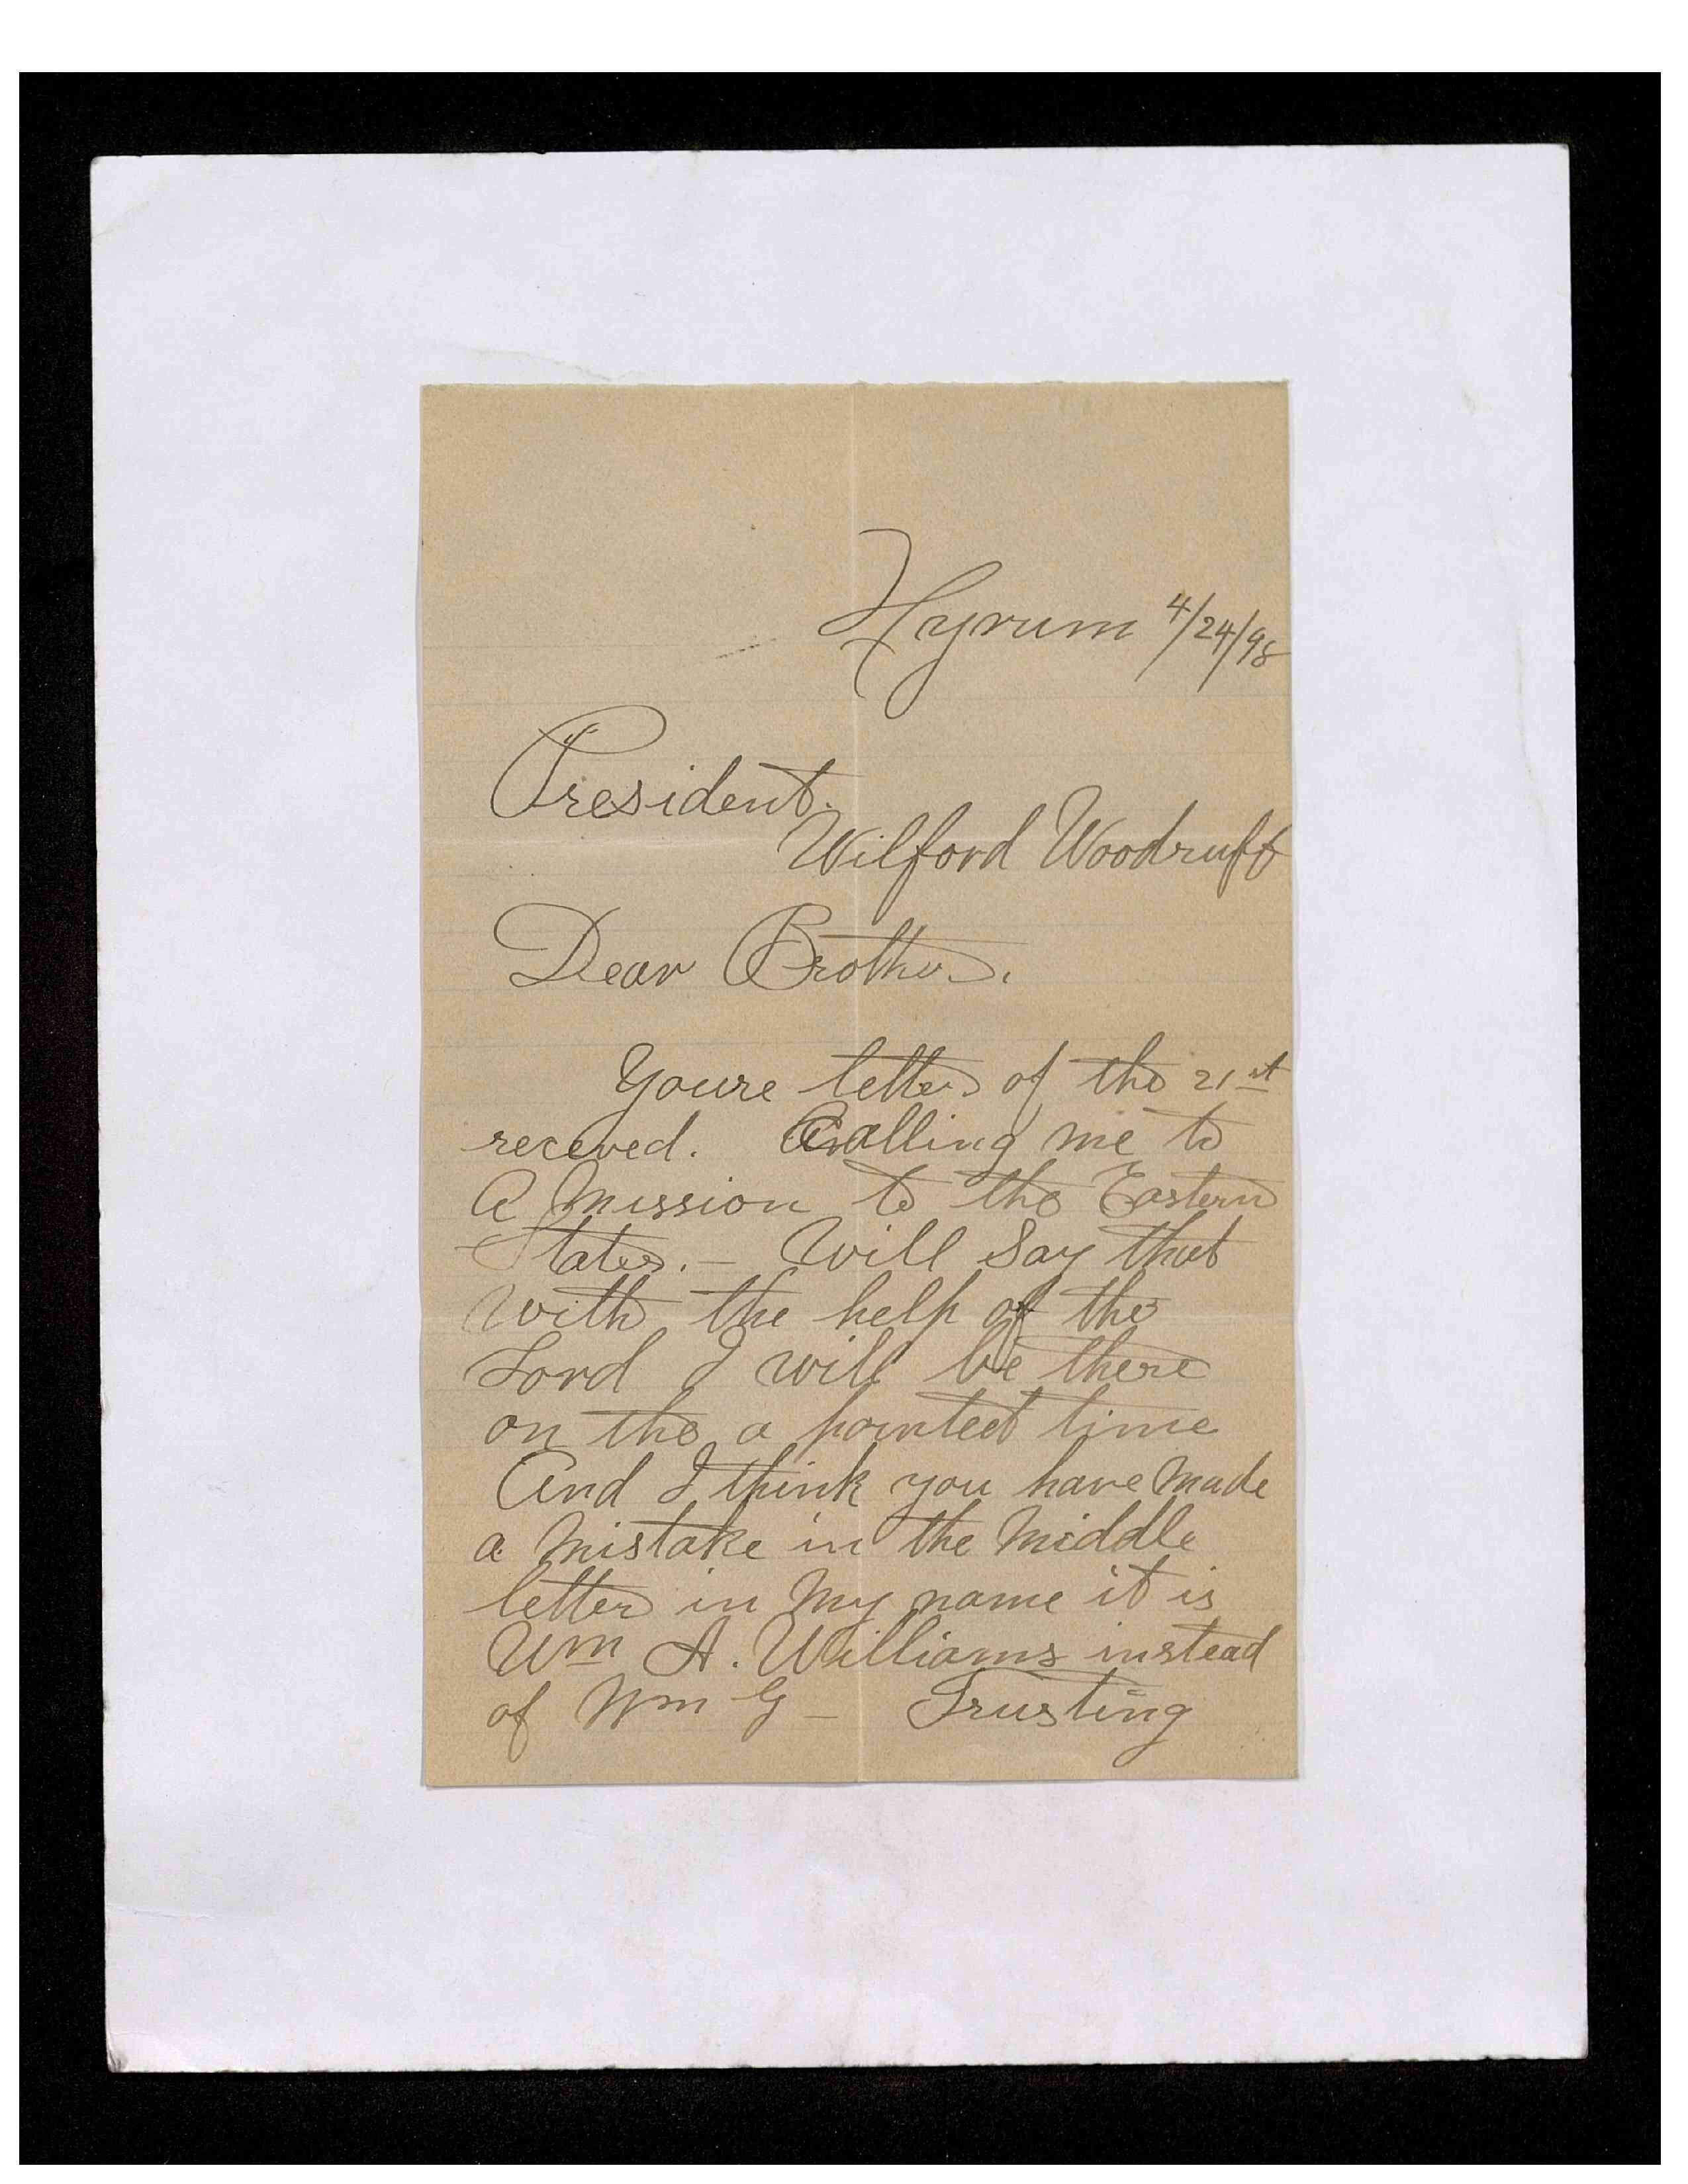 Hyrum 4/24/98
President.
Wilford Woodruff
Dear Brother.
Youre letter of the 21st
receved. Calling me to
A Mission to the Eastern
States. — Will Say that
with the help of the
Lord I will be there
on the a pointed time
And I think you have Made
a Mistake in the Middle
letter in My name it is
Wm A. Williams instead
of Wm G — Trusting